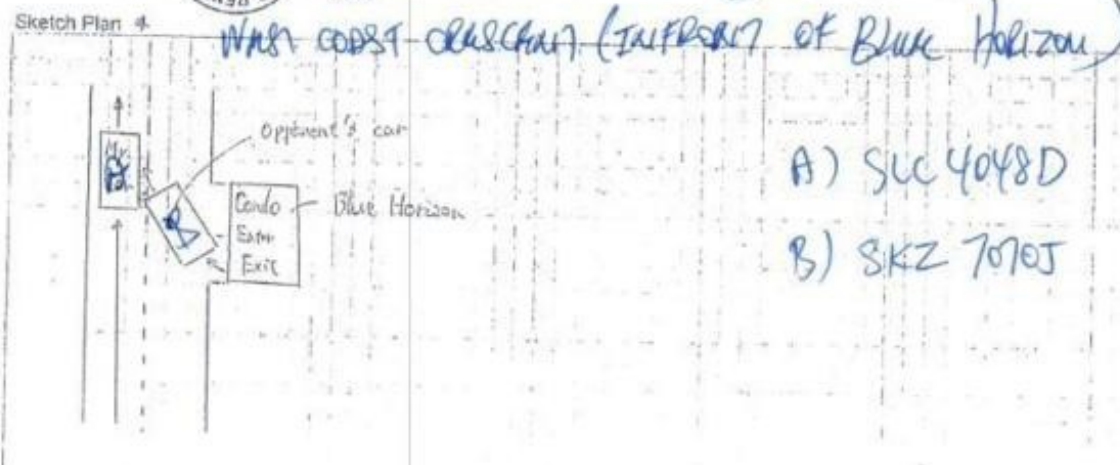 Sketch Plan
WEST COAST CRESCENT (INFRONT OF BLUE HORIZON)
Opponent's car
My
A
B
Condo
Exit
Blue Horizon
A) SLC 4048D
B) SKZ 7070J